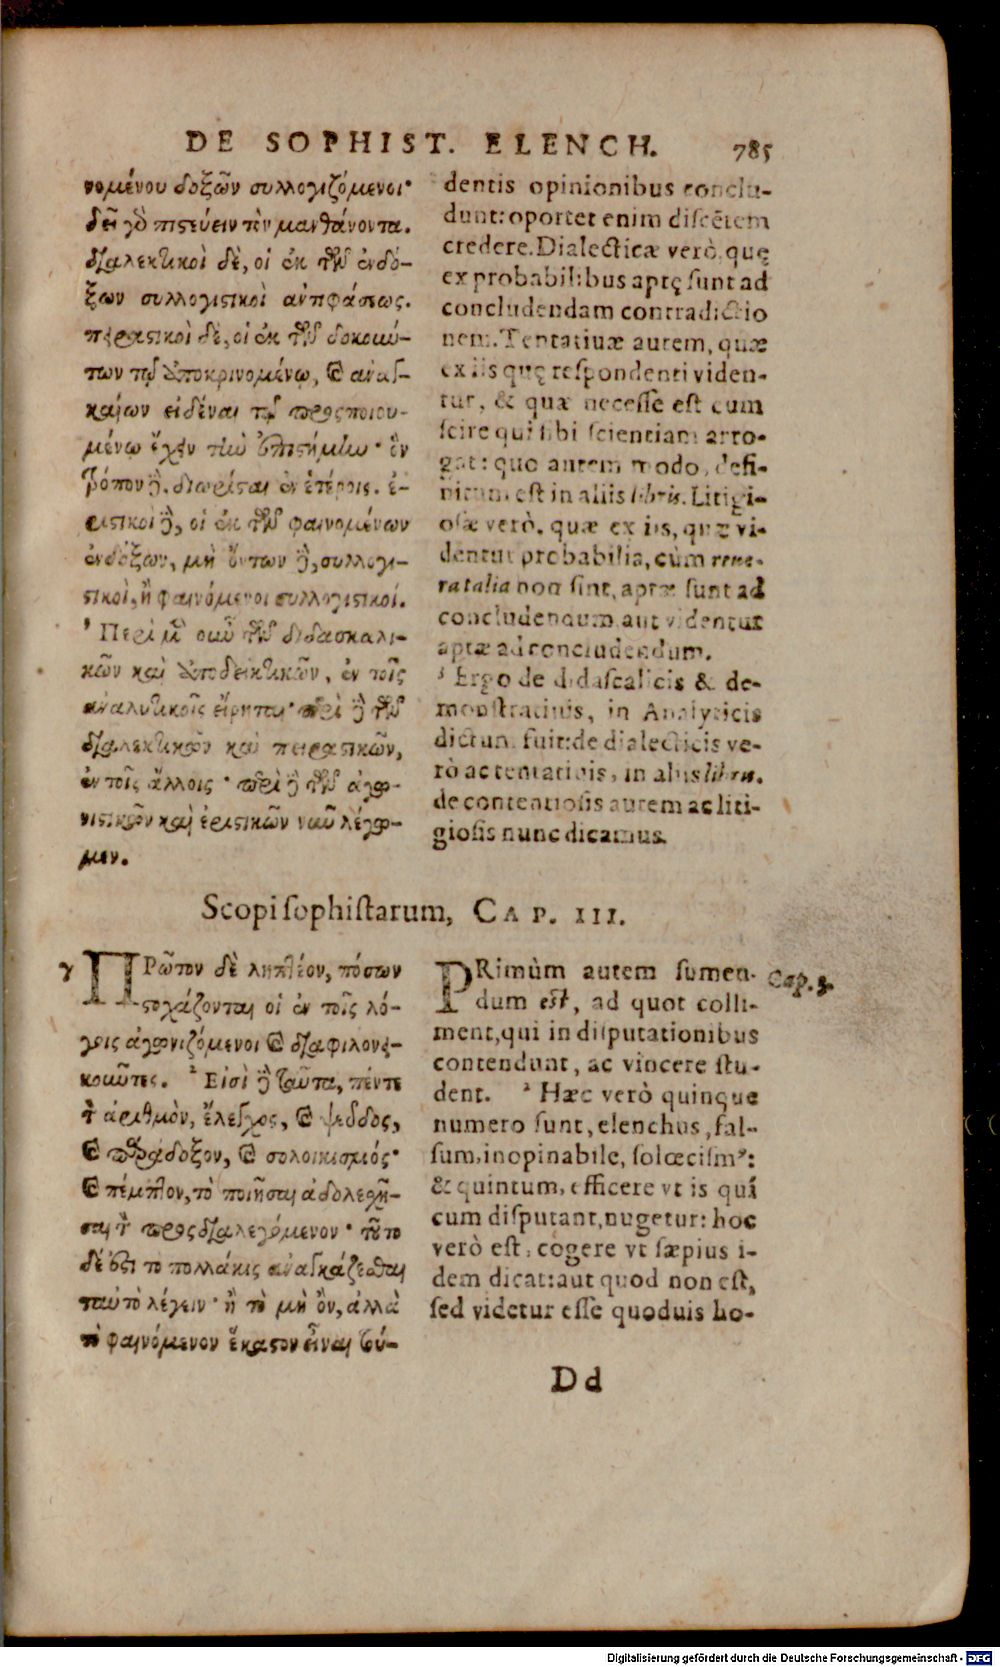 DE SOPHIST. ELENCH. 785
νομένου δοξῶν συλλογιζόμενοι·
δεῖ γὸ πιστεύειν τὸν μανθάνοντα.
διαλεκτικοὶ δὲ, οἱ ἐκ τῶν ἐνδό-
ξων συλλογιστικοὶ ἀντιφάσεως.
πειραστικοὶ δὲ, οἱ ἐκ τῶν δοκούν-
των τῷ ἀποκρινομένῳ, καὶ ἀναγ-
καίων εἰδέναι τῷ προσποιου-
μένῳ ἔχειν τὴν ἐπιστήμην· ὃν
τρόπον δὲ, διώρισται ἐν ἑτέροις. ἐ-
ριστικοὶ δὲ, οἱ ἐκ τῶν φαινομένων
ἐνδόξων, μὴ ὄντων δὲ, συλλογι-
στικοὶ, ἢ φαινόμενοι συλλογιστικοί.
³ Περὶ μὲν οὖν τῶν διδασκαλι-
κῶν καὶ ἀποδεικτικῶν, ἐν τοῖς
ἀναλυτικοῖς εἴρηται· περὶ δὲ τῶν
διαλεκτικῶν καὶ πειραστικῶν,
ἐν τοῖς ἄλλοις· περὶ δὲ τῶν ἀγω-
νιστικῶν καὶ ἐριστικῶν νῦν λέγω-
μεν.
dentis opinionibus conclu-
dunt: oportet enim discẽtem
credere. Dialecticæ verò, quę
ex probabilibus aptę sunt ad
concludendam contradictio
nem. Tentatiuæ autem, quæ
ex iis quę respondenti viden-
tur, & quæ necesse est eum
scire qui sibi scientiam arro-
gat: quo autem modo, defi-
nitum est in aliis libris. Litigi-
osæ verò, quæ ex iis, quæ vi-
dentur probabilia, cùm reue-
ra talia non sint, aptæ sunt ad
concludendum, aut videntur
aptæ ad concludendum.
³ Ergo de didascalicis & de-
monstratiuis, in Analyticis
dictum fuit: de dialecticis ve-
rò ac tentatiuis, in aliis libris.
de contentiosis autem ac liti-
giosis nunc dicamus.
Scopi sophistarum, CAP. III.
γ ΠΡῶτον δὲ ληπτέον, πόσων
στοχάζονται οἱ ἐν τοῖς λό-
γοις ἀγωνιζόμενοι καὶ διαφιλονει-
κοῦντες. ² Εἰσὶ δὲ ταῦτα, πέντε
τὸν ἀριθμὸν, ἔλεγχος, καὶ ψεῦδος,
καὶ παράδοξον, καὶ σολοικισμός·
καὶ πέμπτον, τὸ ποιῆσαι ἀδολεσχῆ-
σαι τὸν προσδιαλεγόμενον· τοῦτο
δέ ἐστι τὸ πολλάκις ἀναγκάζεσθαι
ταὐτὸ λέγειν· ἢ τὸ μὴ ὂν, ἀλλὰ
τὸ φαινόμενον ἕκαστον εἶναι τού-
PRimùm autem sumen- Cap. 3.
dum est, ad quot colli-
ment, qui in disputationibus
contendunt, ac vincere stu-
dent. ² Hæc verò quinque
numero sunt, elenchus, fal-
sum, inopinabile, solœcismꝰ:
& quintum, efficere vt is quí
cum disputant, nugetur: hoc
verò est, cogere vt sæpius i-
dem dicat: aut quod non est,
sed videtur esse quoduis ho-
Dd
Digitalisierung gefördert durch die Deutsche Forschungsgemeinschaft - DFG